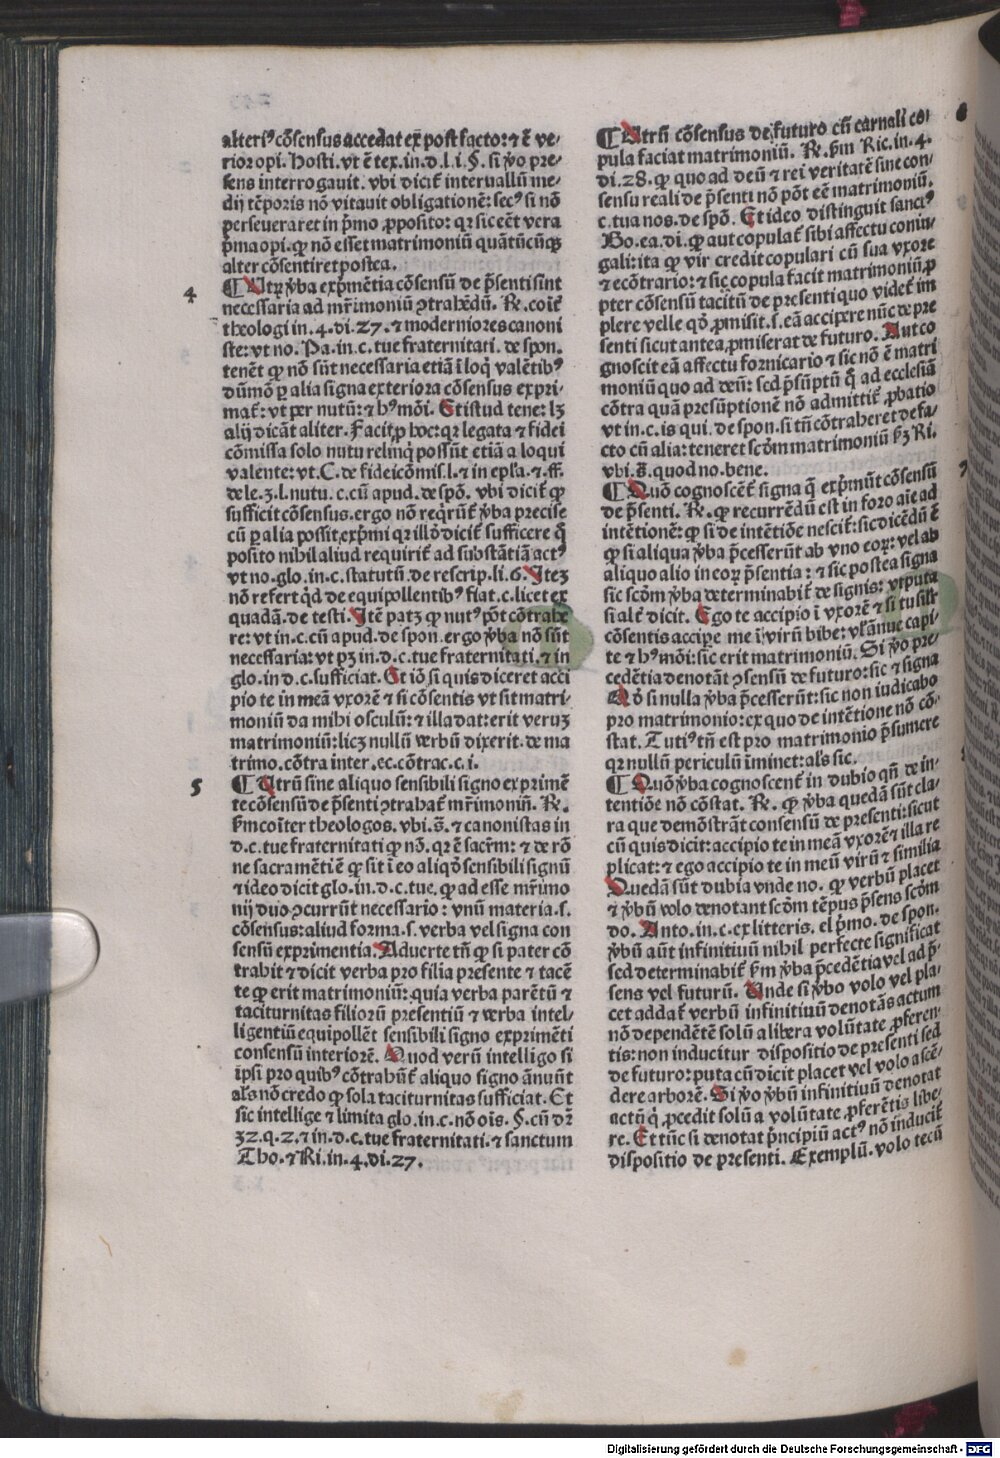 alteri⁹ cõsensus accedat ex̃ post facto: ⁊ ẽ ve-
rior opi. Hosti. vt ẽ tex. in. d. l. i. §. si ṽo pre-
sens interrogauit. vbi dicit̃ interuallũ me-
dij tẽporis nõ vitauit obligationẽ: sec⁹ si nõ
perseueraret in p̃mo ꝓposito: qꝛ sic eẽt vera
p̃ma opi. ꝙ nõ esset matrimoniũ quãtũcũqꝫ
alter cõsentiret postea.
4
¶ Vtrꝝ ṽba exp̃mẽtia cõsensũ de p̃senti sint
necessaria ad mr̃imoniũ ꝯtrahẽdũ. R̃. coĩẽ
theologi in. 4. di. 27. ⁊ moderniores canoni
ste: vt no. Pa. in. c. tue fraternitati. de spon.
tenẽt ꝙ nõ sũt necessaria etiã ĩ loq̃ valẽtib⁹
dũmõ ꝑ alia signa exteriora cõsensus expri-
mat̃: vt per nutũ: ⁊ h⁹mõi. Et istud tene: lꝫ
alij dicãt aliter. Facit ꝓ hoc: qꝛ legata ⁊ fidei
cõmissa solo nutu relinq̃ possũt etiã a loqui
valente: vt. C. de fideicõmis. l. ⁊ in epl̃a. ⁊. ff.
de le. 3. l. nutu. c. cũ apud. de spõ. vbi dicit̃ ꝙ
sufficit cõsensus. ergo nõ req̃rũt̃ ṽba precise
cũ ꝑ alia possit exp̃mi qꝛ illõ dicit̃ sufficere q̃
posito nihil aliud requirit̃ ad substãtiã act⁹
vt no. glo. in. c. statutũ. de rescrip. li. 6. Itez
nõ refert qd̃ de equipollentib⁹ fiat. c. licet ex
quadã. de testi. Itẽ patꝫ ꝙ nut⁹ põt cõtrahe
re: vt in. c. cũ apud. de spon. ergo ṽba nõ sũt
necessaria: vt pꝫ in. d. c. tue fraternitati. ⁊ in
glo. in d. c. sufficiat. Et iõ si quis diceret acci
pio te in meã vxorẽ ⁊ si cõsentis vt sit matri-
moniũ da mihi osculũ: ⁊ illa dat: erit veruꝫ
matrimoniũ: licꝫ nullũ verbũ dixerit. de ma
trimo. cõtra inter. ec. cõtrac. c. i.
5
¶ Vtrũ sine aliquo sensibili signo exprimẽ
te cõsensũ de p̃senti ꝯtrahat̃ mr̃imoniũ. R̃.
s̃m coĩter theologos. vbi. s̃. ⁊ canonistas in
d. c. tue fraternitati ꝙ nõ. qꝛ ẽ sacr̃m: ⁊ de rõ
ne sacramẽti ẽ ꝙ sit ĩ eo aliqõ sensibili signũ
⁊ ideo dicit glo. in. d. c. tue. ꝙ ad esse mr̃imo
nij duo ꝯcurrũt necessario: vnũ materia. s.
cõsensus: aliud forma. s. verba vel signa con
sensũ exprimentia. Aduerte tñ ꝙ si pater cõ
trahit ⁊ dicit verba pro filia presente ⁊ tacẽ
te ꝙ erit matrimoniũ: quia verba parẽtũ ⁊
taciturnitas filiorũ presentiũ ⁊ verba intel-
ligentiũ equipollẽt sensibili signo exprimẽti
consensũ interiorẽ. Quod verũ intelligo si
ip̃si pro quib⁹ cõtrahũt̃ aliquo signo ãnuũt
al̃s nõ credo ꝙ sola taciturnitas sufficiat. Et
sic intellige ⁊ limita glo. in. c. nõ oĩs. §. cũ dr̃
32. q. 2. ⁊ in. d. c. tue fraternitati. ⁊ sanctum
Tho. ⁊ Ri. in. 4. di. 27.
6
¶ Vtrũ cõsensus de futuro cũ carnali co-
pula faciat matrimoniũ. R̃. s̃m Ric. in. 4.
di. 28. ꝙ quo ad deũ ⁊ rei veritatẽ sine con-
sensu reali de p̃senti nõ põt eẽ matrimoniũ.
c. tua nos. de spõ. Et ideo distinguit sanct⁹
Bo. ea. di. ꝙ aut copulat̃ sibi affectu coniu-
gali: ita ꝙ vir credit copulari cũ sua vxore
⁊ ecõtrario: ⁊ sic copula facit matrimoniũ ꝓ
pter cõsensũ tacitũ de presenti quo videt̃ im
plere velle qõ ꝓmisit. s. eã accipere nũc de pre
senti sicut antea ꝓmiserat de futuro. Aut co
gnoscit eã affectu fornicario ⁊ sic nõ ẽ matri
moniũ quo ad deũ: sed p̃sũptũ q̃ ad ecclesiã
cõtra quã presũptionẽ nõ admittit̃ ꝓbatio
vt in. c. is qui. de spon. si tñ cõtraheret de fa-
cto cũ alia: teneret scd̃m matrimoniũ s̃ꝫ Ri.
vbi. s̃. quod no. bene.
7
¶ Quõ cognoscẽt̃ signa q̃ exp̃mũt cõsensũ
de p̃senti. R̃. ꝙ recurrẽdũ est in foro aĩe ad
intẽtionẽ: ꝙ si de intẽtiõe nescit̃: sic dicẽdũ ẽ
ꝙ si aliqua ṽba p̃cesserũt ab vno eoꝝ: vel ab
aliquo alio in eoꝝ p̃sentia: ⁊ sic postea signa
sic scd̃m ṽba determinabit̃ de signis: vtputa
si alt̃ dicit. Ego te accipio ĩ vxorẽ ⁊ si tu sil̃r
cõsentis accipe me ĩ virũ bibe: vl̃ ãnue capi-
te ⁊ h⁹mõi: sic erit matrimoniũ. Si ṽo pre
cedẽtia denotãt ꝯsensũ de futuro: sic ⁊ signa
Qõ si nulla ṽba p̃cesserũt: sic non iudicabo
pro matrimonio: ex quo de intẽtione nõ cõ-
stat. Tuti⁹ tñ est pro matrimonio p̃sumere
qꝛ nullũ periculũ iminet: al̃s sic.
¶ Quõ ṽba cognoscent̃ in dubio qñ de in-
tentiõe nõ cõstat. R̃. ꝙ ṽba quedã sũt cla-
ra que demõstrãt consensũ de presenti: sicut
cũ quis dicit: accipio te in meã vxorẽ ⁊ illa re
plicat: ⁊ ego accipio te in meũ virũ ⁊ similia
Quedã sũt dubia vnde no. ꝙ verbũ placet
⁊ ṽbũ volo denotant scd̃m tẽpus p̃sens scd̃m
do. Anto. in. c. ex litteris. el p̃mo. de spon.
ṽbũ aũt infinitiuũ nihil perfecte significat
sed determinabit̃ s̃m ṽba p̃cedẽtia vel ad p̃-
sens vel futurũ. Unde si ṽbo volo vel pla-
cet addat̃ verbũ infinitiuũ denotãs actum
nõ dependẽtẽ solũ a libera volũtate ꝓferen-
tis: non inducitur dispositio de presenti sed
de futuro: puta cũ dicit placet vel volo ascẽ-
dere arborẽ. Si ṽo ṽbũ infinitiuũ denotat
actũ q̃ ꝓcedit solũ a volũtate ꝓferẽtis libe-
re. Et tũc si denotat p̃ncipiũ act⁹ nõ inducit̃
dispositio de presenti. Exemplũ. volo tecũ
Digitalisierung gefördert durch die Deutsche Forschungsgemeinschaft - DFG